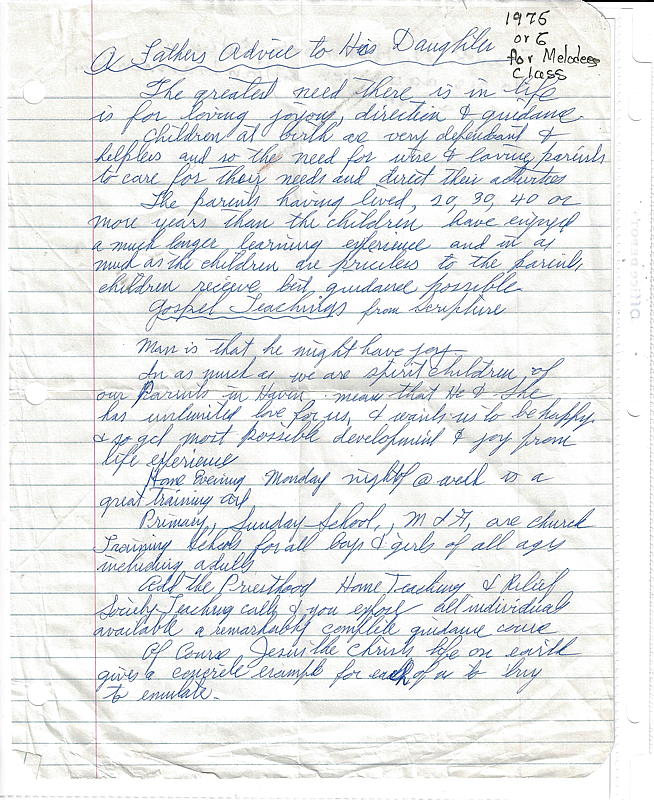 1975
or 6
for Melodees
Class
A Fathers Advice to His Daughter
The greatest need there is in life
is for loving joyous, direction & guidance.
Children at birth are very dependant &
helpless and so the need for wise & loving parents
to care for their needs and direct their activities
The parents having lived, 20, 30, 40 or
more years than the children have enjoyed
a much longer learning experience and in as
much as the children are priceless to the parents,
children receive best guidance possible.
Gospel Teachings from Scripture
Man is that he might have joy
In as much as we are spirit children of
our Parents in Haven means that He & She
has unlimited love for us, & wants us to be happy
& so get most possible development & joy from
life experience
Home Evening Monday night @ week is a
great training
Primary, Sunday School, M I A, are church
Training Schools for all boys & girls of all ages
including adults
Add the Priesthood Home Teaching & Relief
Society Teaching calls & you expose all individual
available a remarkably complete guidance course
Of Course, Jesus the Christs life on earth
gives a concrete example for each of us to try
to emulate.
Office DEPOT